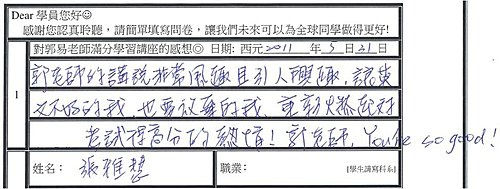 Dear 學員您好☺
感謝您認真聆聽，請簡單填寫問卷，讓我們未來可以為全球同學做得更好!
對郭易老師滿分學習講座的感想◎ 日期: 西元2011年5月21日
1
郭老師的講說非常風趣且引人興趣，讓英
文不好的我，也要放棄的我，重新燃起對
考試得高分的熱情！郭老師，You're so good!
姓名: 張雅慧
職業:
[學生請寫科系]